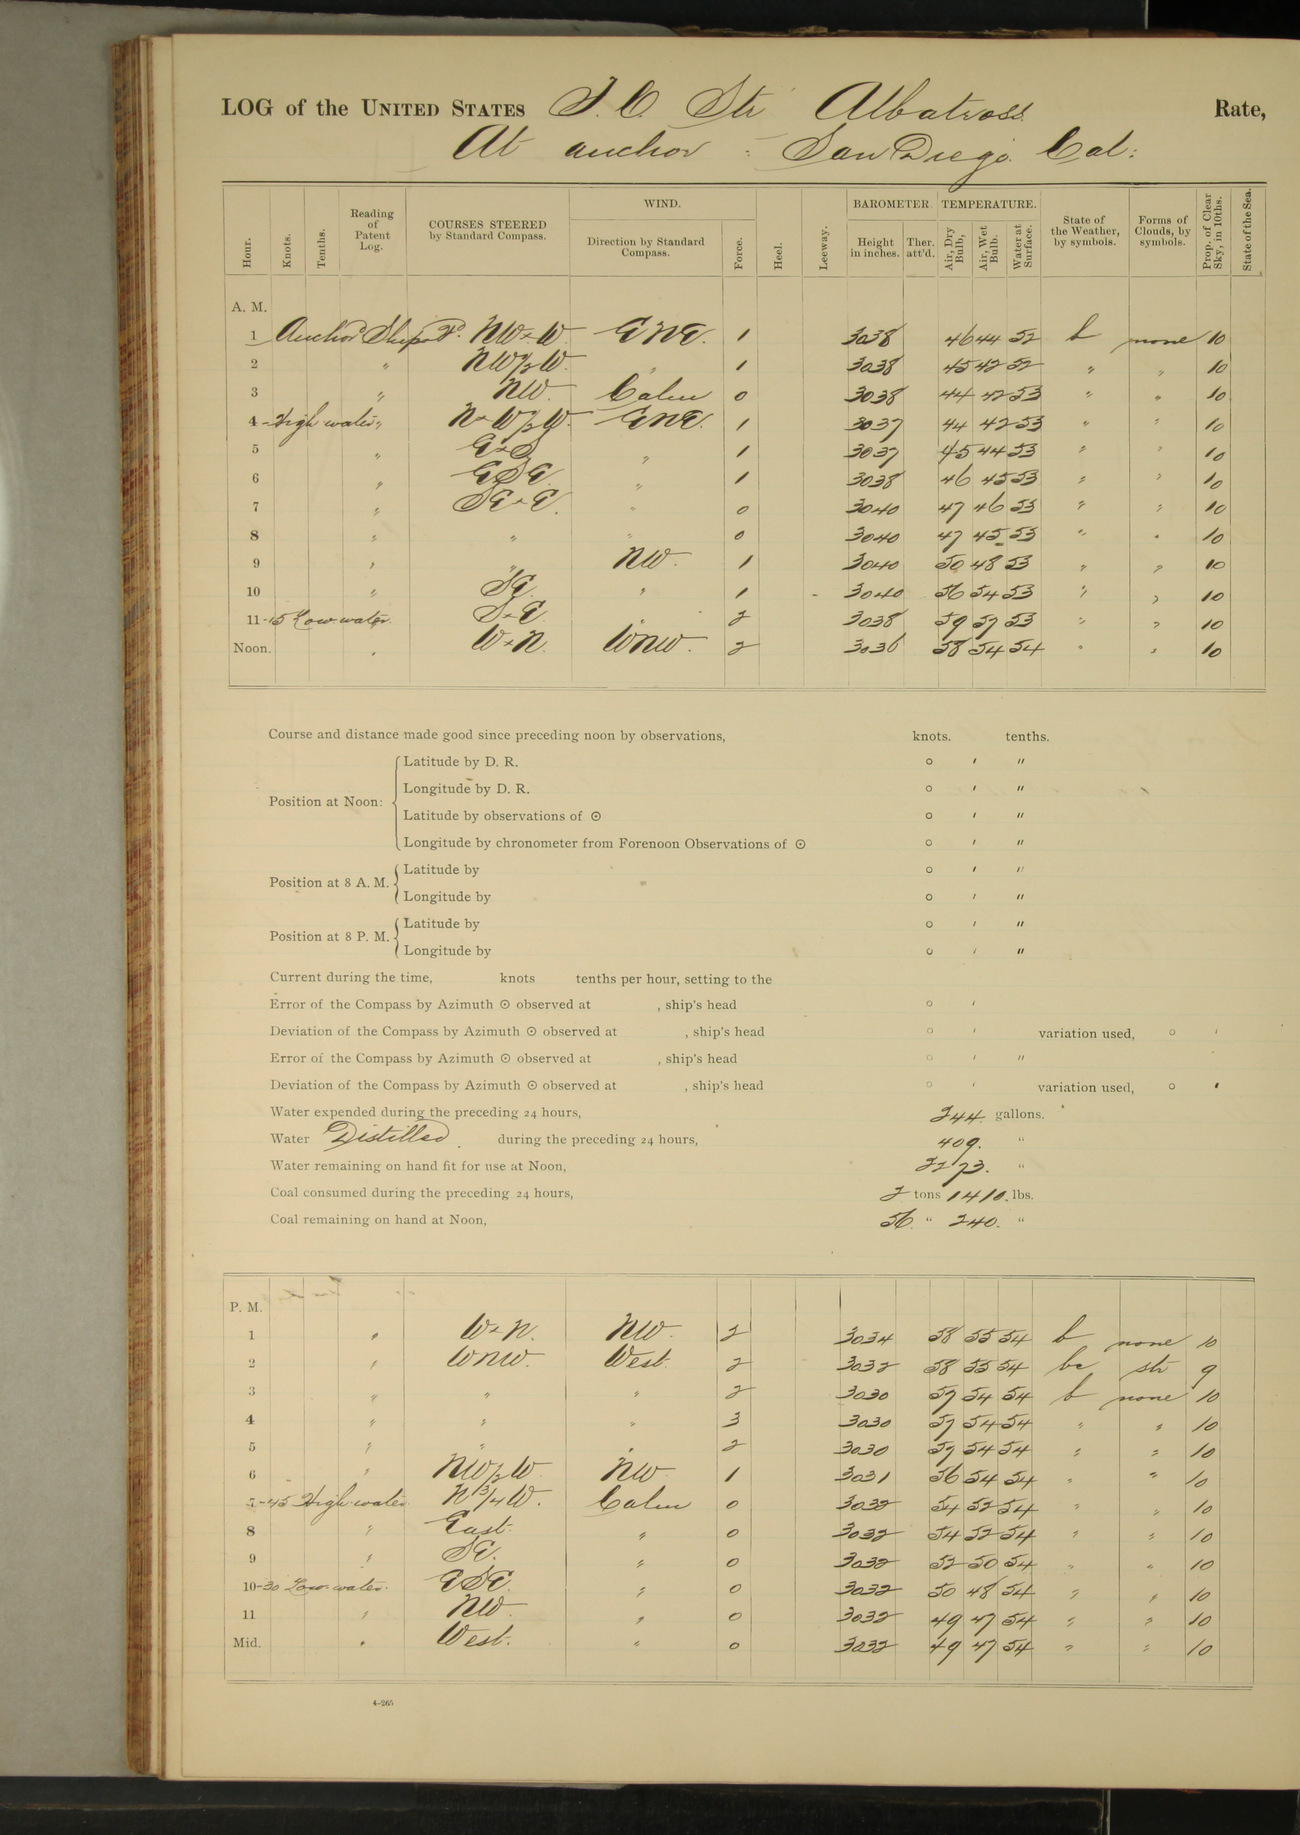 LOG of the UNITED STATES F. C. Str Albatross Rate,
At anchor : San Diego. Cal:
Hour. Knots. Tenths. Reading of Patent Log. COURSES STEERED by Standard Compass. WIND. Direction by Standard Compass. Force. Heel. Leeway. BAROMETER. Height in inches. Ther. att'd. TEMPERATURE. Air, Dry Bulb, Air, Wet Bulb. Water at Surface. State of the Weather, by symbols. Forms of Clouds, by symbols. Prop. of Clear Sky, in 10ths. State of the Sea.
A. M.
1 Anchor'd Ship's NW x W ENE. 1 3038 46 44 52 b none 10
2 " NW 1/2 W. " 1 3038 45 42 52 " " 10
3 " NW. Calm 0 3038 44 42 53 " " 10
4 - High water " N x W 1/2 W. ENE. 1 3037 44 42 53 " " 10
5 " E x S " 1 3037 45 44 53 " " 10
6 " ESE. " 1 3038 46 45 53 " " 10
7 " SE x E. " 0 3040 47 46 53 " " 10
8 " " " 0 3040 47 45 53 " " 10
9 " " NW. 1 3040 50 48 53 " " 10
10 " SE. " 1 3040 56 54 53 " " 10
11-15 Low water. S x E. " 2 3038 59 57 53 " " 10
Noon. " W x N. WNW. 2 3036 58 54 54 " " 10
Course and distance made good since preceding noon by observations, knots. tenths.
Position at Noon: Latitude by D. R. ° ′ ″
Longitude by D. R. ° ′ ″
Latitude by observations of ☉ ° ′ ″
Longitude by chronometer from Forenoon Observations of ☉ ° ′ ″
Position at 8 A. M. Latitude by ° ′ ″
Longitude by ° ′ ″
Position at 8 P. M. Latitude by ° ′ ″
Longitude by ° ′ ″
Current during the time, knots tenths per hour, setting to the
Error of the Compass by Azimuth ☉ observed at , ship's head ° ′
Deviation of the Compass by Azimuth ☉ observed at , ship's head ° ′ variation used, ° ′
Error of the Compass by Azimuth ☉ observed at , ship's head ° ′ ″
Deviation of the Compass by Azimuth ☉ observed at , ship's head ° ′ variation used, ° ′
Water expended during the preceding 24 hours, 344. gallons.
Water Distilled. during the preceding 24 hours, 409. "
Water remaining on hand fit for use at Noon, 3273. "
Coal consumed during the preceding 24 hours, 2 tons 1410. lbs.
Coal remaining on hand at Noon, 56. " 240. "
P. M.
1 " W x N. NW. 2 3034 58 55 54 b none 10
2 " WNW. West. 2 3032 58 55 54 bc str 9
3 " " " 2 3030 57 54 54 b none 10
4 " " " 3 3030 57 54 54 " " 10
5 " " " 2 3030 57 54 54 " " 10
6 " NW 1/2 W NW 1 3031 56 54 54 " " 10
7-45 High water N 3/4 W. Calm 0 3032 54 52 54 " " 10
8 " East. " 0 3032 54 52 54 " " 10
9 " SE. " 0 3032 52 50 54 " " 10
10-30 Low water. ESE. " 0 3032 50 48 54 " " 10
11 " NW. " 0 3032 49 47 54 " " 10
Mid. " West. " 0 3032 49 47 54 " " 10
4-265